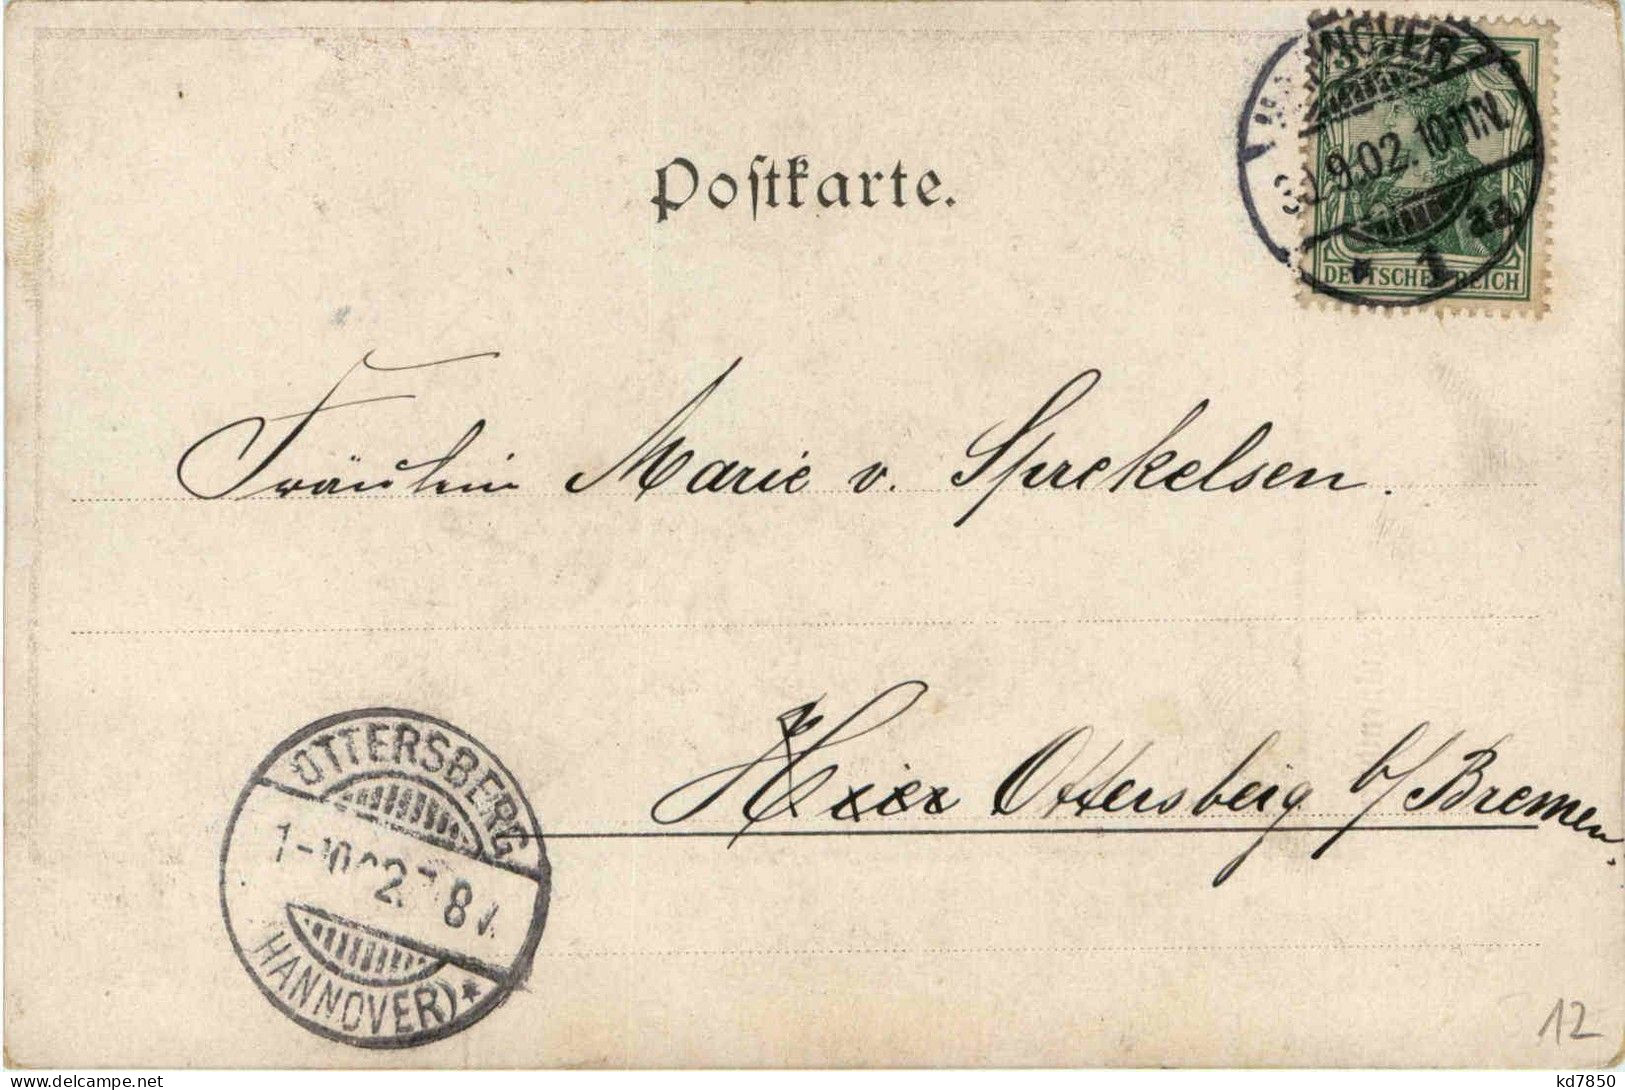 Postkarte.
HANNOVER
30.9.02. 10-11N.
* 1 aa
DEUTSCHES REICH
Fräulein Marie v. Sprekelsen.
Hier Ottersberg b/Bremen.
OTTERSBERG
1-10.02. 7-8V.
(HANNOVER) *
12
delcampe.net
kd7850